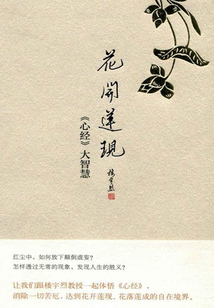 花開蓮現
《心经》大智慧
楼宇烈
红尘中，如何放下颠倒虚妄？
怎样透过无常的现象，发现人生的胜义？
让我们跟楼宇烈教授一起体悟《心经》，
消除一切苦厄，达到花开莲现，花落莲成的自在境界。